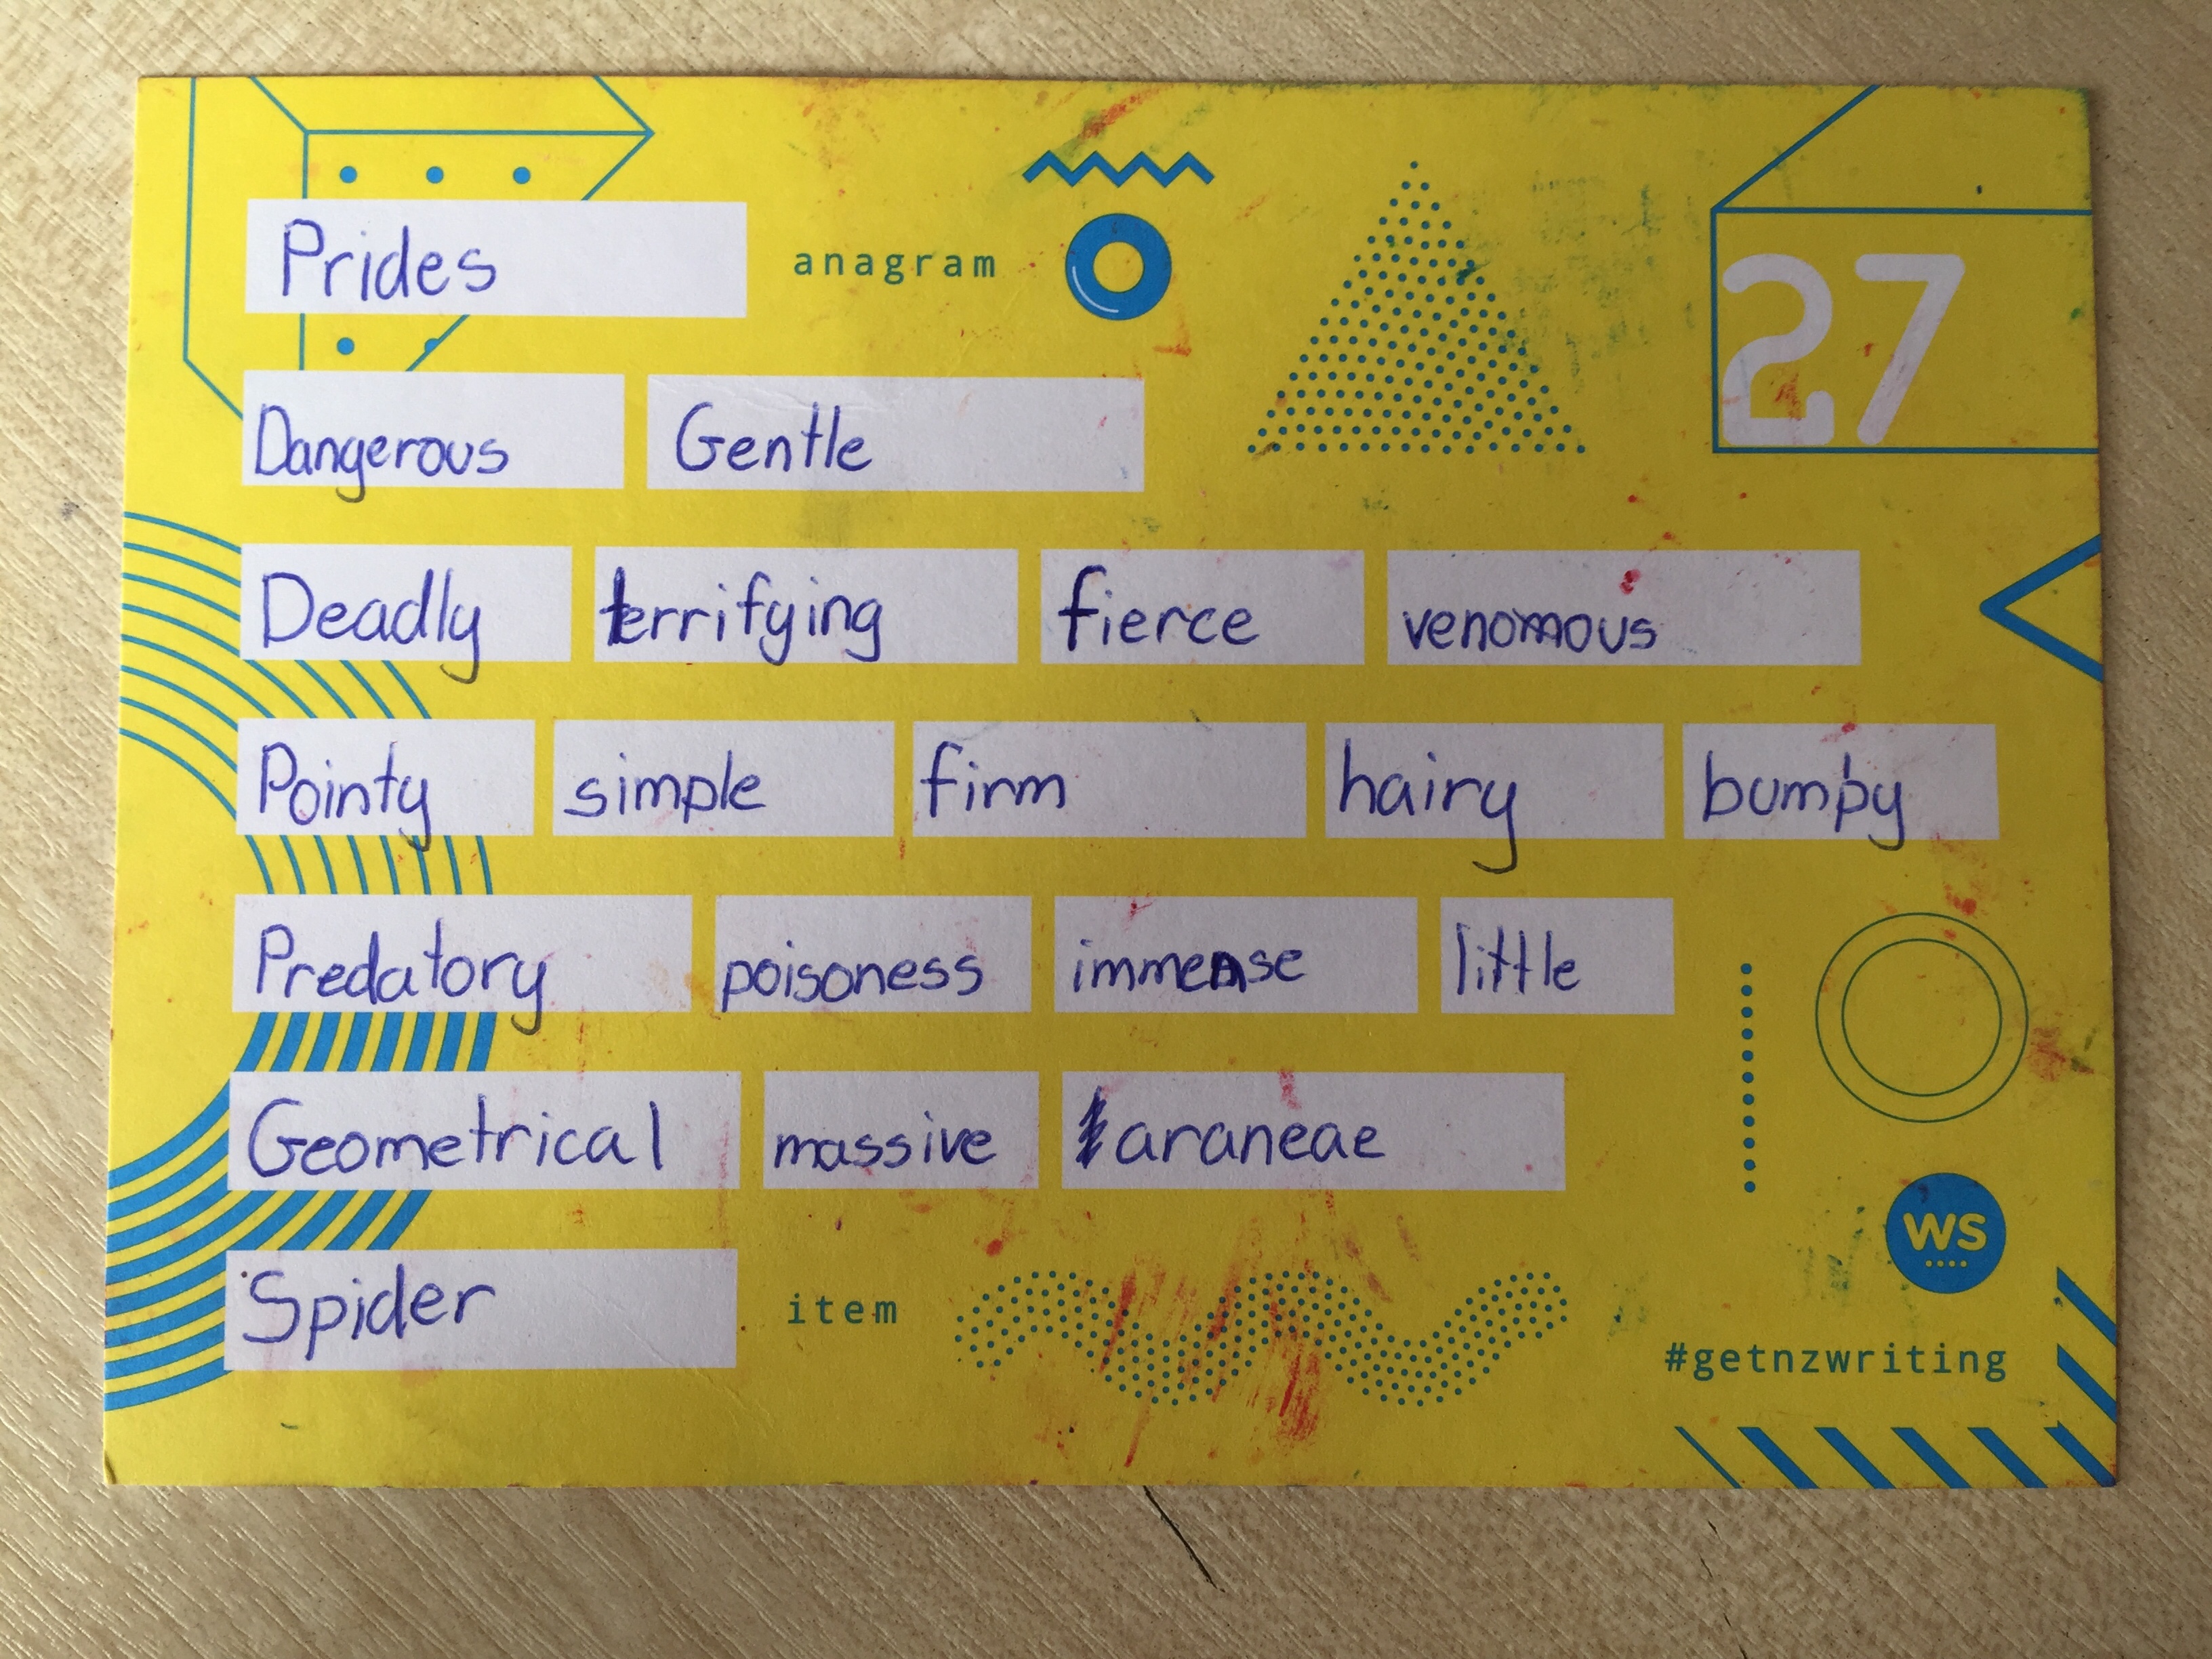 Prides anagram
27
Dangerous Gentle
Deadly terrifying fierce venomous
Pointy simple firm hairy bumpy
Predatory poisoness immense little
Geometrical massive araneae
WS
Spider item
#getnzwriting